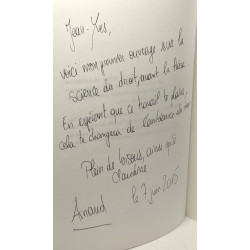 Jean-Yves,
voici mon premier ouvrage sur la
science du droit, avant la thèse
En espérant que ce travail te plaise,
cela te changera de l'ambiance des
Plein de bisous, ainsi qu'à
Claudine
Arnaud
le 7 juin 2005